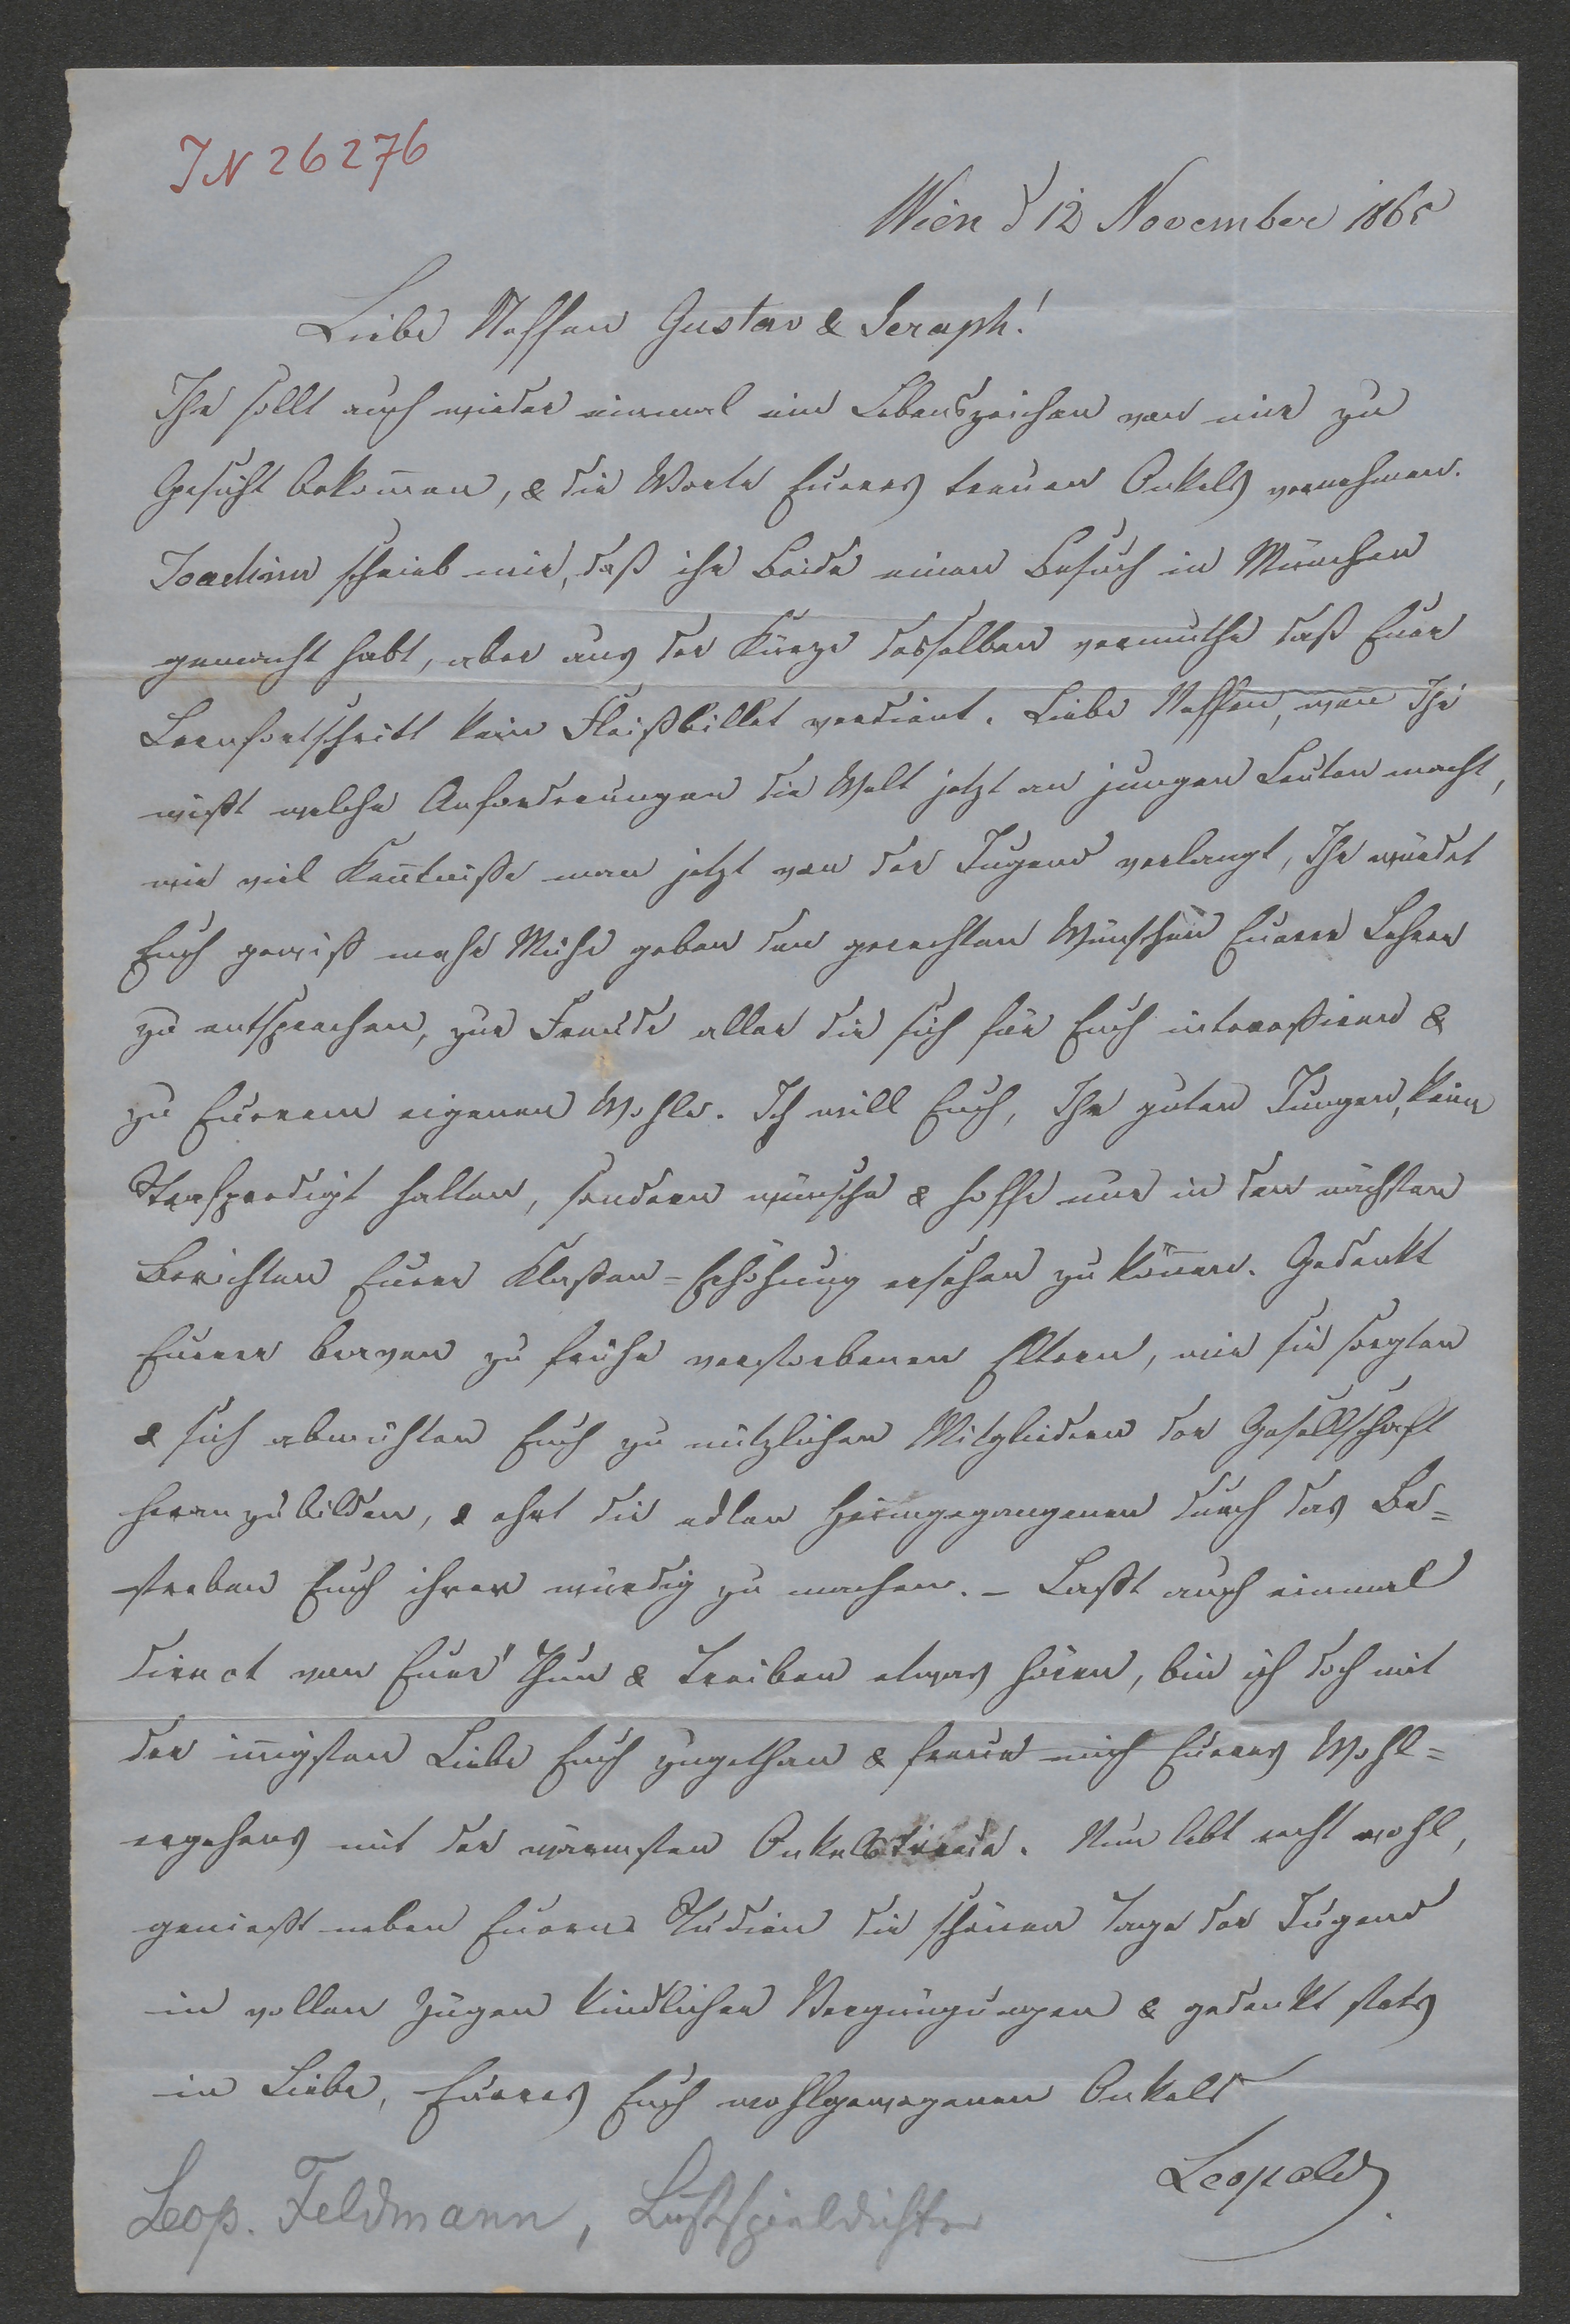 IN 26276
Wien d 12 November 1865
Liebe Neffen Gustav & Seraph!
Ihr sollt auch wieder einmal ein Lebenszeichen von mir zu
Gesicht bekom̅en, & die Worte Eueres treuen Onkels vernehmen.
Joachim schrieb mir, daß ihr Beide einen Besuch in München
gemacht habt, aber aus der Kürze desselben vermuthe daß Euer
Lernfortschritt kein Fleißbillet verdient. Liebe Neffen, wen̅ Ihr
wißt welche Anforderungen die Welt jetzt an jungen Leuten macht,
wie viel Ken̅tniße man jetzt von der Jugend verlangt, Ihr würdet
Euch gewiß mehr Mühe geben den gerechten Wünschen Euerer Lehrer
zu entsprechen, zur Freude aller die sich für Euch interessiren &
zu Euerem eigenen Wohle. Ich will Euch, Ihr guten Jungen, keine
Strafpredigt halten, sondern wünsche & hoffe nur in den nächsten
Berichten Euere Klaßen=Erhöhung ersehen zu kön̅en. Gedenkt
Euerer braven zu frühe verstorbenen Eltern, wie sie sorgten
& sich abmühten Euch zu nützlichen Mitgliedern der Gesellschaft
heranzubilden, & ehrt die edlen Heimgegangenen durch das Be=
streben Euch ihrer würdig zu machen. – Laßt auch einmal
direct von Euer' Thun & Treiben etwas hören, bin ich doch mit
der in̅igsten Liebe Euch zugethan & freue mich Eueres Wohl=
ergehens mit der wärmsten Onkelstreue. Nun lebt recht wohl,
genießt neben Euern Studien die schönen Tage der Jugend
in vollen Zügen kindlicher Vergnügungen & gedenkt stets
in Liebe, Eueres Euch wohlgewogenen Onkels
Leopold.
Leop. Feldmann, Lustspieldichter